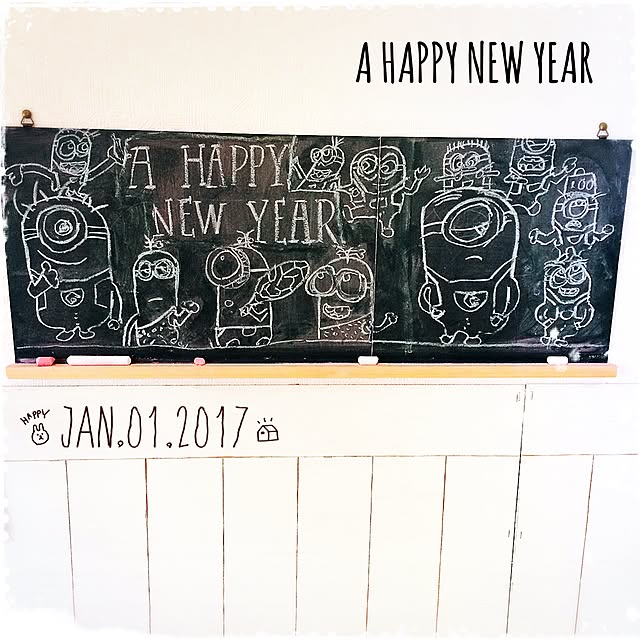 A HAPPY NEW YEAR
A HAPPY
NEW YEAR
HAPPY
JAN.01.2017